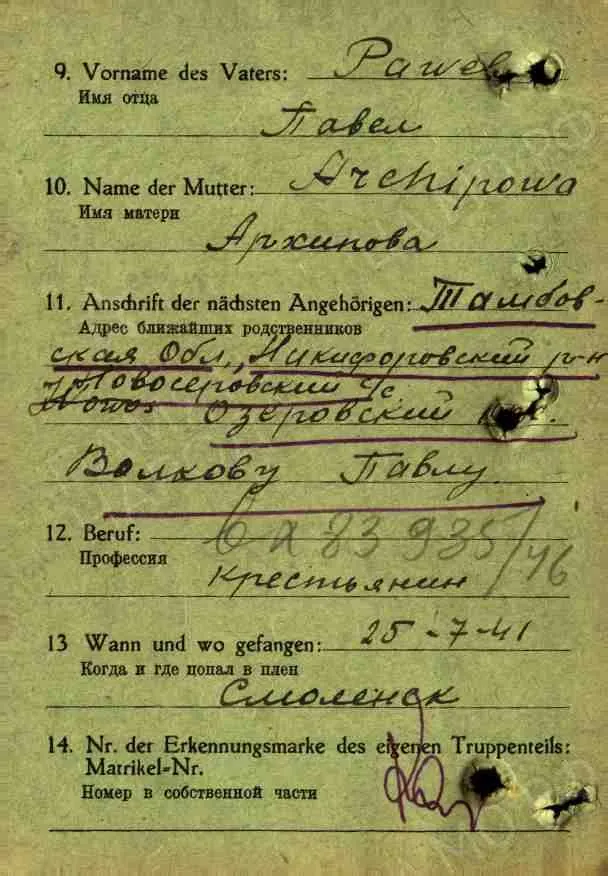 9. Vorname des Vaters: Pawel
Имя отца
Павел
10. Name der Mutter: Archipowa
Имя матери
Архипова
11. Anschrift der nächsten Angehörigen: Тамбов-
Адрес ближайших родственников
ская Обл., Никифоровский р-н
Новосеровский с/с
Озеровский
Волкову Павлу.
12. Beruf: 6a 83935/46
Профессия
крестьянин
13 Wann und wo gefangen: 25-7-41
Когда и где попал в плен
Смоленск
14. Nr. der Erkennungsmarke des eigenen Truppenteils:
Matrikel-Nr.
Номер в собственной части